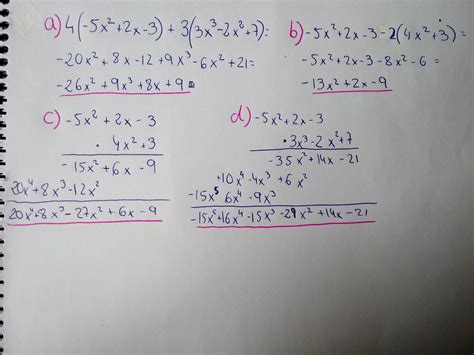 a) 4(-5x²+2x-3) + 3(3x³-2x²+7)=
-20x² + 8x -12 + 9x³ -6x² + 21=
-26x² + 9x³ + 8x + 9
b) -5x²+2x-3-2(4x²+3)=
-5x²+2x-3-8x²-6=
-13x²+2x-9
c) -5x² + 2x - 3
· 4x²+3
-15x²+6x -9
20x⁴+8x³-12x²
20x⁴+8x³-27x²+6x-9
d) -5x²+2x-3
·3x³-2x²+7
-35x²+14x-21
+10x⁴-4x³+6x²
-15x⁵ 6x⁴ -9x³
-15x⁵+16x⁴-15x³-29x²+14x-21